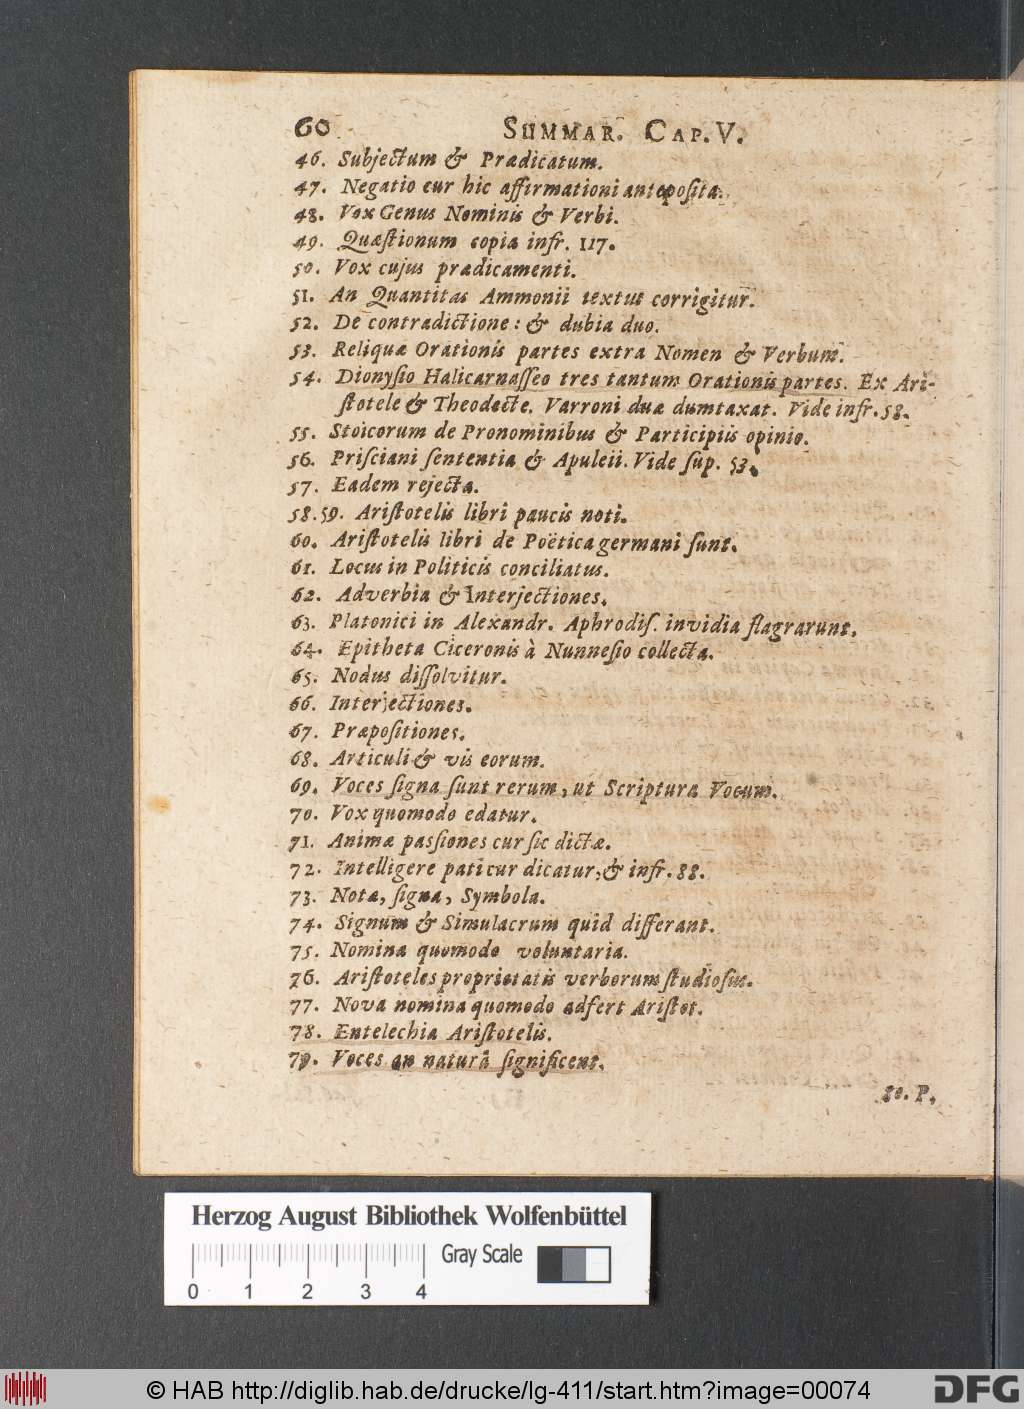 60 SUMMAR. CAP. V.
46. Subjectum & Prædicatum.
47. Negatio cur hic affirmationi anteposita.
48. Vox Genus Nominis & Verbi.
49. Quæſtionum copia infr. 117.
50. Vox cujus prædicamenti.
51. An Quantitas Ammonii textus corrigitur.
52. De contradictione: & dubia duo.
53. Reliquæ Orationis partes extra Nomen & Verbum.
54. Dionyſio Halicarnaſſeo tres tantum Orationis partes. Ex Ari-
ſtotele & Theodecte. Varroni duæ dumtaxat. Vide infr. 58.
55. Stoicorum de Pronominibus & Participiis opinio.
56. Priſciani ſententia & Apuleii. Vide ſup. 53.
57. Eadem rejecta.
58.59. Ariſtotelis libri paucis noti.
60. Ariſtotelis libri de Poëtica germani ſunt.
61. Locus in Politicis conciliatus.
62. Adverbia & Interjectiones.
63. Platonici in Alexandr. Aphrodiſ. invidia flagrarunt.
64. Epitheta Ciceronis à Nunneſio collecta.
65. Nodus diſſolvitur.
66. Interjectiones.
67. Præpoſitiones.
68. Articuli & vis eorum.
69. Voces ſigna ſunt rerum, ut Scriptura Vocum.
70. Vox quomodo edatur.
71. Animæ paſſiones cur ſic dictæ.
72. Intelligere pati cur dicatur, & infr. 88.
73. Notæ, ſigna, Symbola.
74. Signum & Simulacrum quid differant.
75. Nomina quomodo voluntaria.
76. Ariſtoteles proprietatis verborum ſtudioſus.
77. Nova nomina quomodo adfert Ariſtot.
78. Entelechia Ariſtotelis.
79. Voces an naturâ ſignificent.
80. P.
Herzog August Bibliothek Wolfenbüttel
Gray Scale
0 1 2 3 4
© HAB http://diglib.hab.de/drucke/lg-411/start.htm?image=00074
DFG